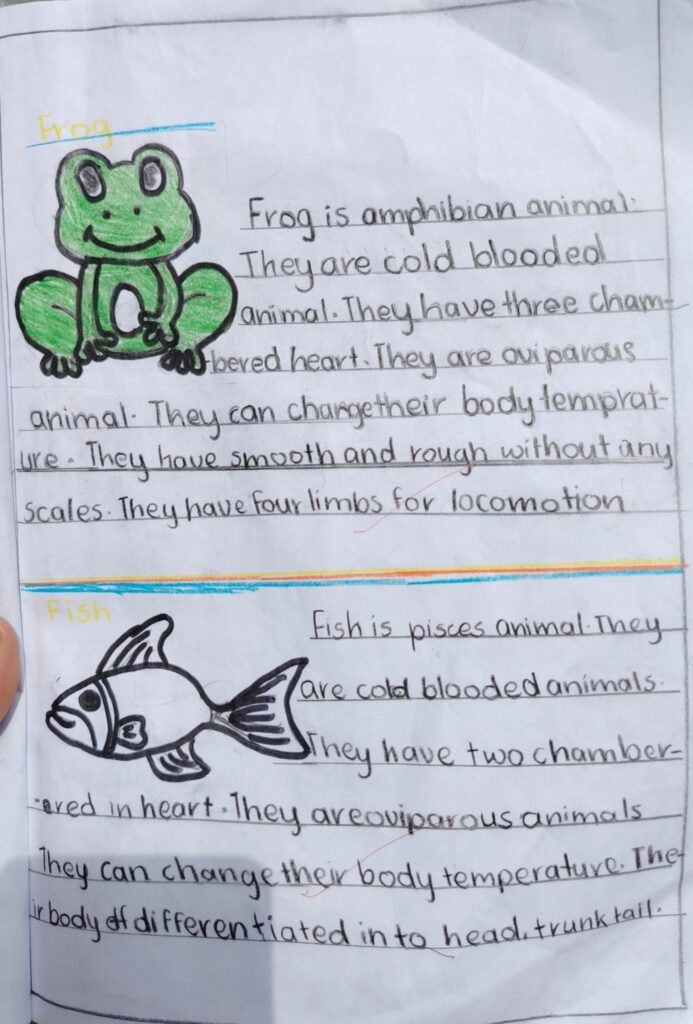 Frog
Frog is amphibian animal.
They are cold blooded
animal. They have three cham-
bered heart. They are oviparous
animal. They can change their body temprat-
ure. They have smooth and rough without any
scales. They have four limbs for locomotion
Fish
Fish is pisces animal. They
are cold blooded animals.
They have two chamber-
-ered in heart. They are oviparous animals
They can change their body temperature. The-
ir body of differentiated in to head, trunk tail.